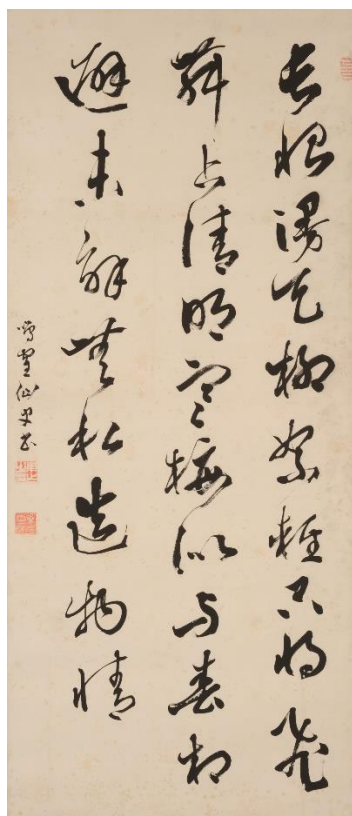 長恨漫天柳絮輕只將飛
舞占清明寒梅似与春相
避未解無私造物情
仙史書